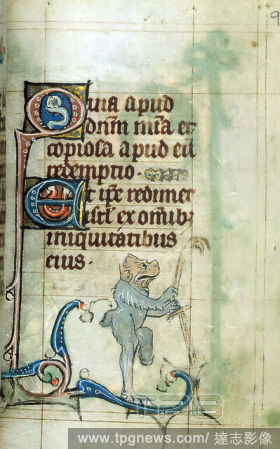 9
Quia apud
dom̄ mīa et
copiosa apud eū
redemptio.
Et ip̄e redimet
isrl̄ ex omīb
iniquitatibus
eius.
www.tpgnews.com/ 達志影像